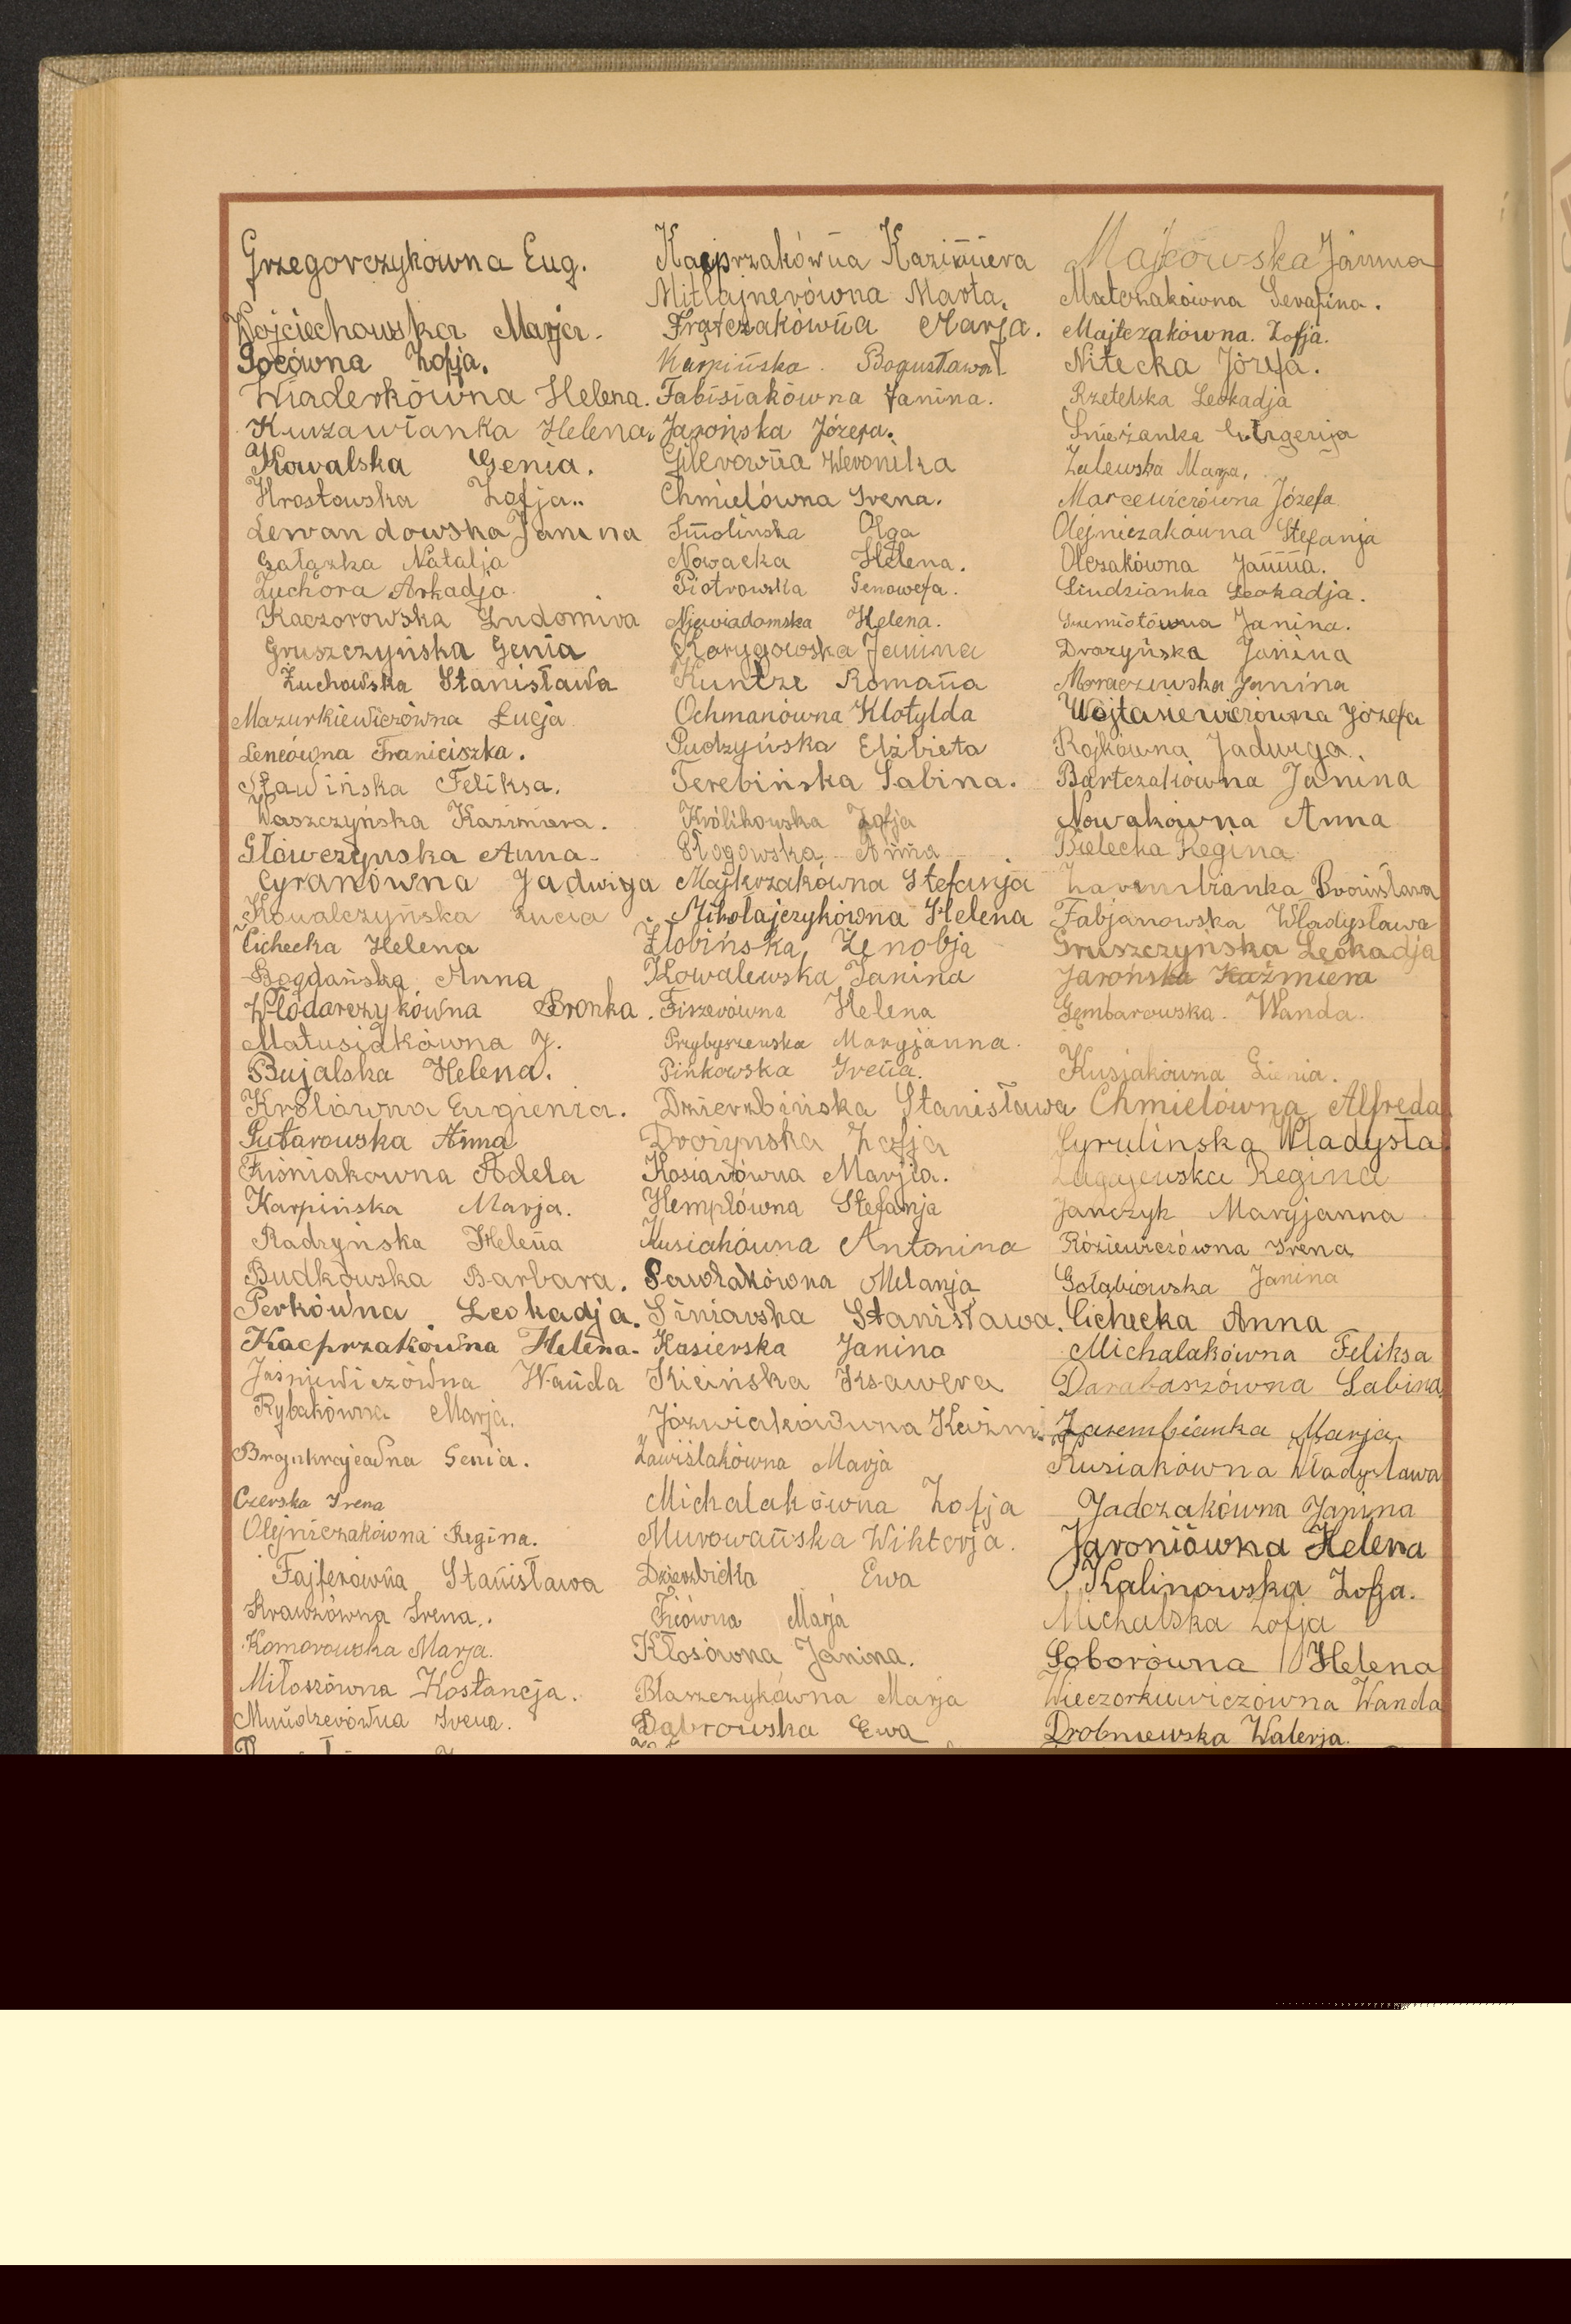 Grzegorczykówna Eug.
Wojciechowska Marja.
Socówna Zofja.
Wiaderkówna Helena.
Kurzawianka Helena.
Kowalska Genia.
Hrostowska Zofja..
Lewandowska Janina
Gałązka Natalja
Żuchora Arkadja
Kaczorowska Ludomira
Gruszczyńska Genia
Żuchowska Stanisława
Mazurkiewiczówna Łucja
Lencówna Franiciszka.
Sławińska Feliksa.
Waszczyńska Kazimiera.
Główczyńska Anna.
Cyranówna Jadwiga
Kowalczyńska Łucia
Cichecka Helena
Bogdańska Anna
Włodarczykówna Bronka.
Matusiakówna J.
Bujalska Helena.
Królówna Eugienia.
Putarowska Anna
Fiśniakowna Adela
Karpińska Marja.
Radzyńska Helena
Budkowska Barbara.
Perkówna Leokadja.
Kacprzakówna Helena.
Jaśniewiczówna Wanda
Rybakówna Marja.
Genia.
Czerska Irena
Olejniczakówna Regina.
Fajferówna Stanisława
Krawzówna Irena.
Komorowska Marja.
Miłoszówna Kostancja.
Irena.
Kacprzakówna Kazimiera
Mitlajnerówna Marta.
Frątczakówna Marja.
Karpińska Bogusława.
Fabisiakówna Janina.
Jarońska Józefa.
Gilerówna Weronika
Chmielówna Irena.
Smolinska Olga
Nowacka Helena.
Piotrowska Genowefa.
Niewiadomska Helena.
Korygowska Janina
Kuntze Romana
Ochmanówna Klotylda
Pudzyńska Elżbieta
Terebińska Sabina.
Królikowska Zofja
Głogowska Anna
Majkrzakówna Stefanja
Mikołajczykówna Helena
Żłobińska, Zenobja
Kowalewska Janina
Fiszerówna Helena
Przybyszewska Maryjanna.
Pińkowska Irena.
Dzierzbińska Stanisława
Drożynska Zofja
Kosiarówna Marjia.
Hemplówna Stefanja
Kusiakówna Antonina
Sawzakówna Melanja
Siniarska Stanisława.
Kasierska Janina
Kicińska Ksawera
Józwiakówna Kazimi.
Zawiślakówna Marja
Michalakówna Zofja
Murowańska Wikterja.
Dzierzbicka Ewa
Ficówna Marja
Kłosówna Janina.
Błaszczykówna Marja
Dąbrowska Ewa
Majcowska Janina
Matczakówna Serafina.
Majtczakówna. Zofja.
Nitecka Józefa.
Rzetelska Leokadja
Śnieżanka
Zalewska Marja.
Marcewiczówna Józefa
Olejniczakówna Stefanja
Olczakówna Janina.
Siudzianka Leokadja.
Gumiotówna Janina.
Drożyńska Janina
Moraczewska Janina
Wojtasiewiczówna Józefa
Rojkówna Jadwiga.
Bartczakówna Janina
Nowakówna Anna
Bielecka Regina
Zarembianka Bronisława
Fabjanowska Władysława
Gruszczynska Leokadja
Jarońska Kaźmiera
Gembarowska. Wanda.
Kusiakówna Gienia.
Chmielówna Alfreda
Cyrulinska Władysła
Zagajewska Regina
Janczyk Maryjanna
Róziewiczówna Irena
Gołąbiowska Janina
Cichecka Anna
Michalakówna Feliksa
Darabaszówna Sabina
Zarembianka Marja.
Kusiakówna Władysława
Jadczakówna Janina
Jaroniówna Helena
Kalinowska Zofja.
Michalska Zofja
Soborówna Helena
Wieczorkiewiczówna Wanda
Drobniewska Walerja.